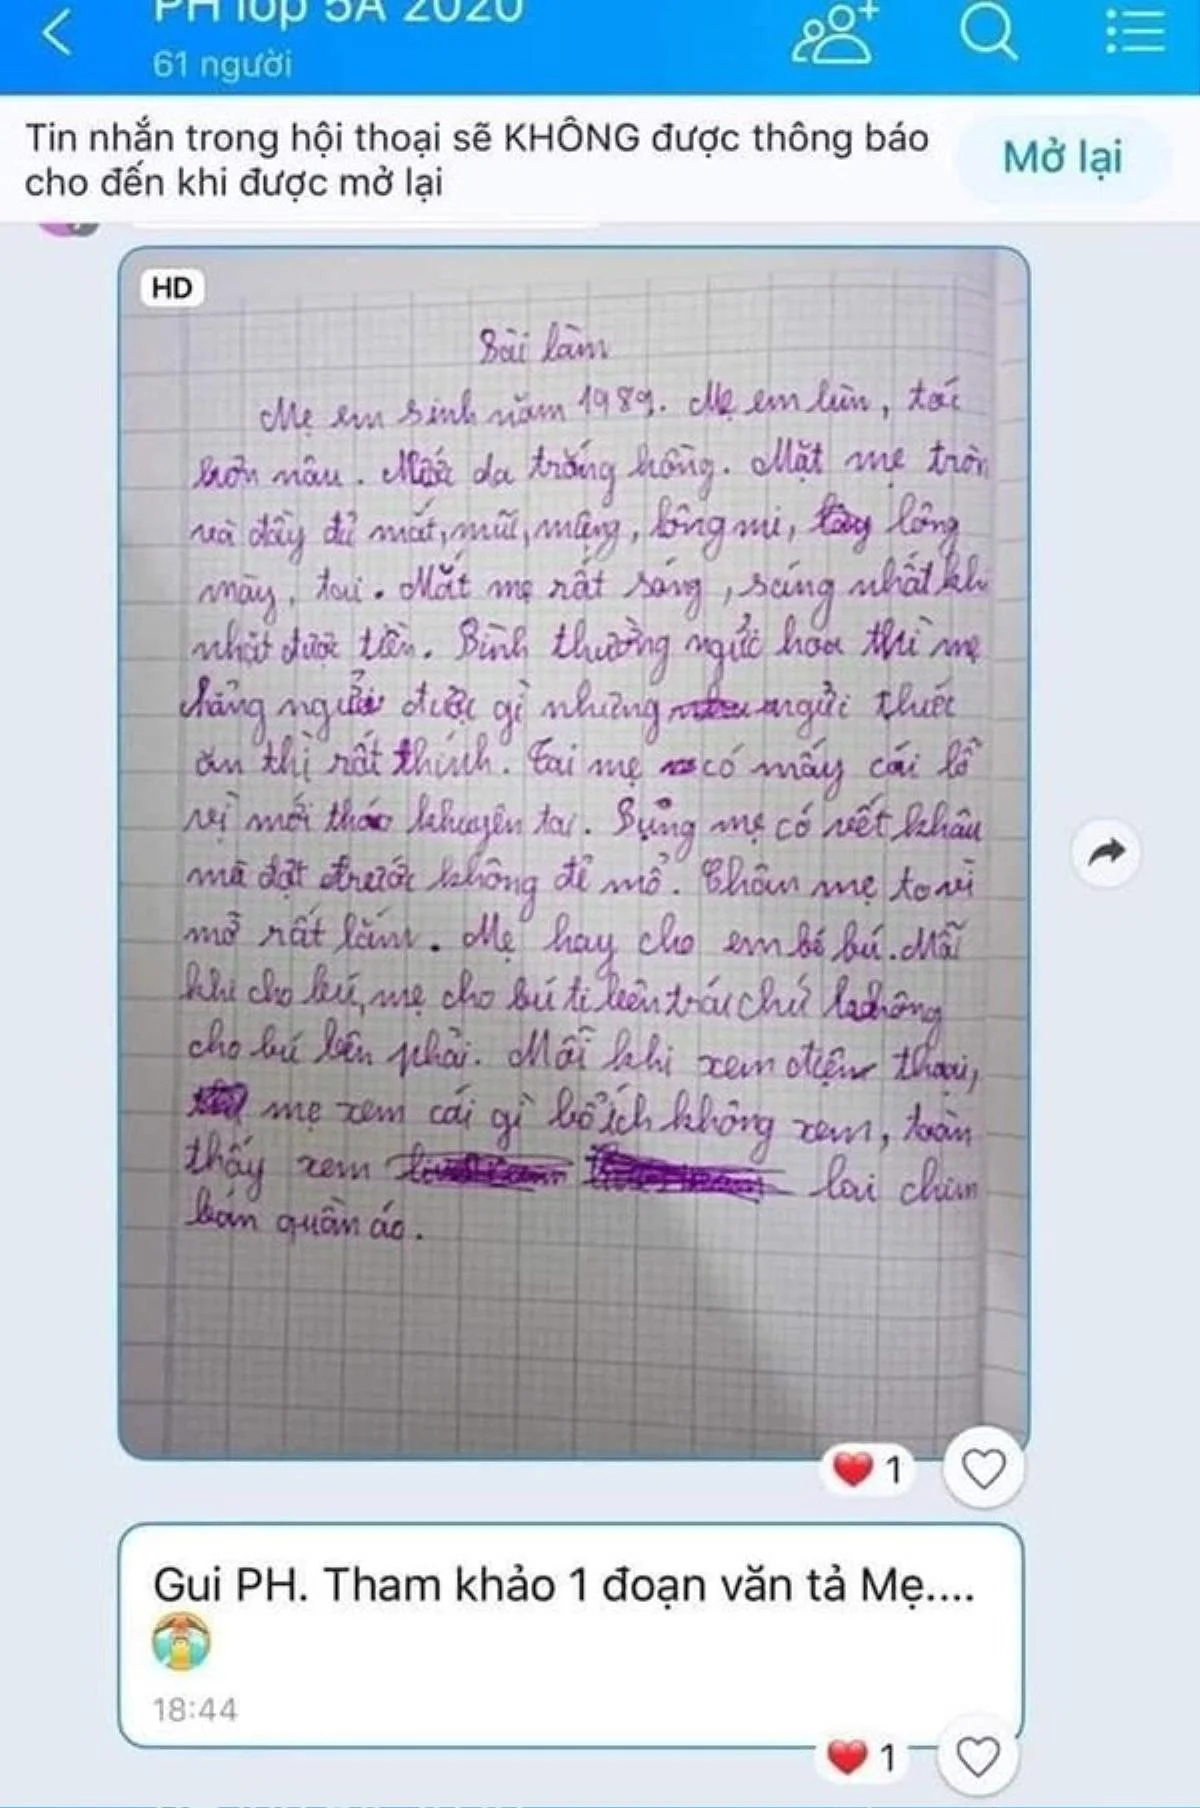 PH lớp 5A 2020
61 người
Tin nhắn trong hội thoại sẽ KHÔNG được thông báo
cho đến khi được mở lại
Mở lại
HD
Bài làm
Mẹ em sinh năm 1989. Mẹ em lùn, tóc
hơn nâu. da trắng hồng. Mặt mẹ tròn
và đầy đủ mắt, mũi, miệng, lông mi, lông
mày, tai. Mắt mẹ rất sáng, sáng nhất khi
nhặt được tiền. Bình thường ngửi hoa thì mẹ
chẳng ngửi được gì nhưng ngửi thức
ăn thì rất thính. Tai mẹ có mấy cái lỗ
vị mới tháo khuyên tai. Bụng mẹ có vết khâu
mà đợt trước không đẻ mổ. Chân mẹ to vì
mỡ rất lắm. Mẹ hay cho em bé bú. Mỗi
khi cho bú, mẹ cho bú ti bên trái chứ không
cho bú bên phải. Mỗi khi xem điện thoại,
mẹ xem cái gì bổ ích không xem, toàn
thấy xem lai chim
bán quần áo.
1
Gui PH. Tham khảo 1 đoạn văn tả Mẹ....
18:44
1